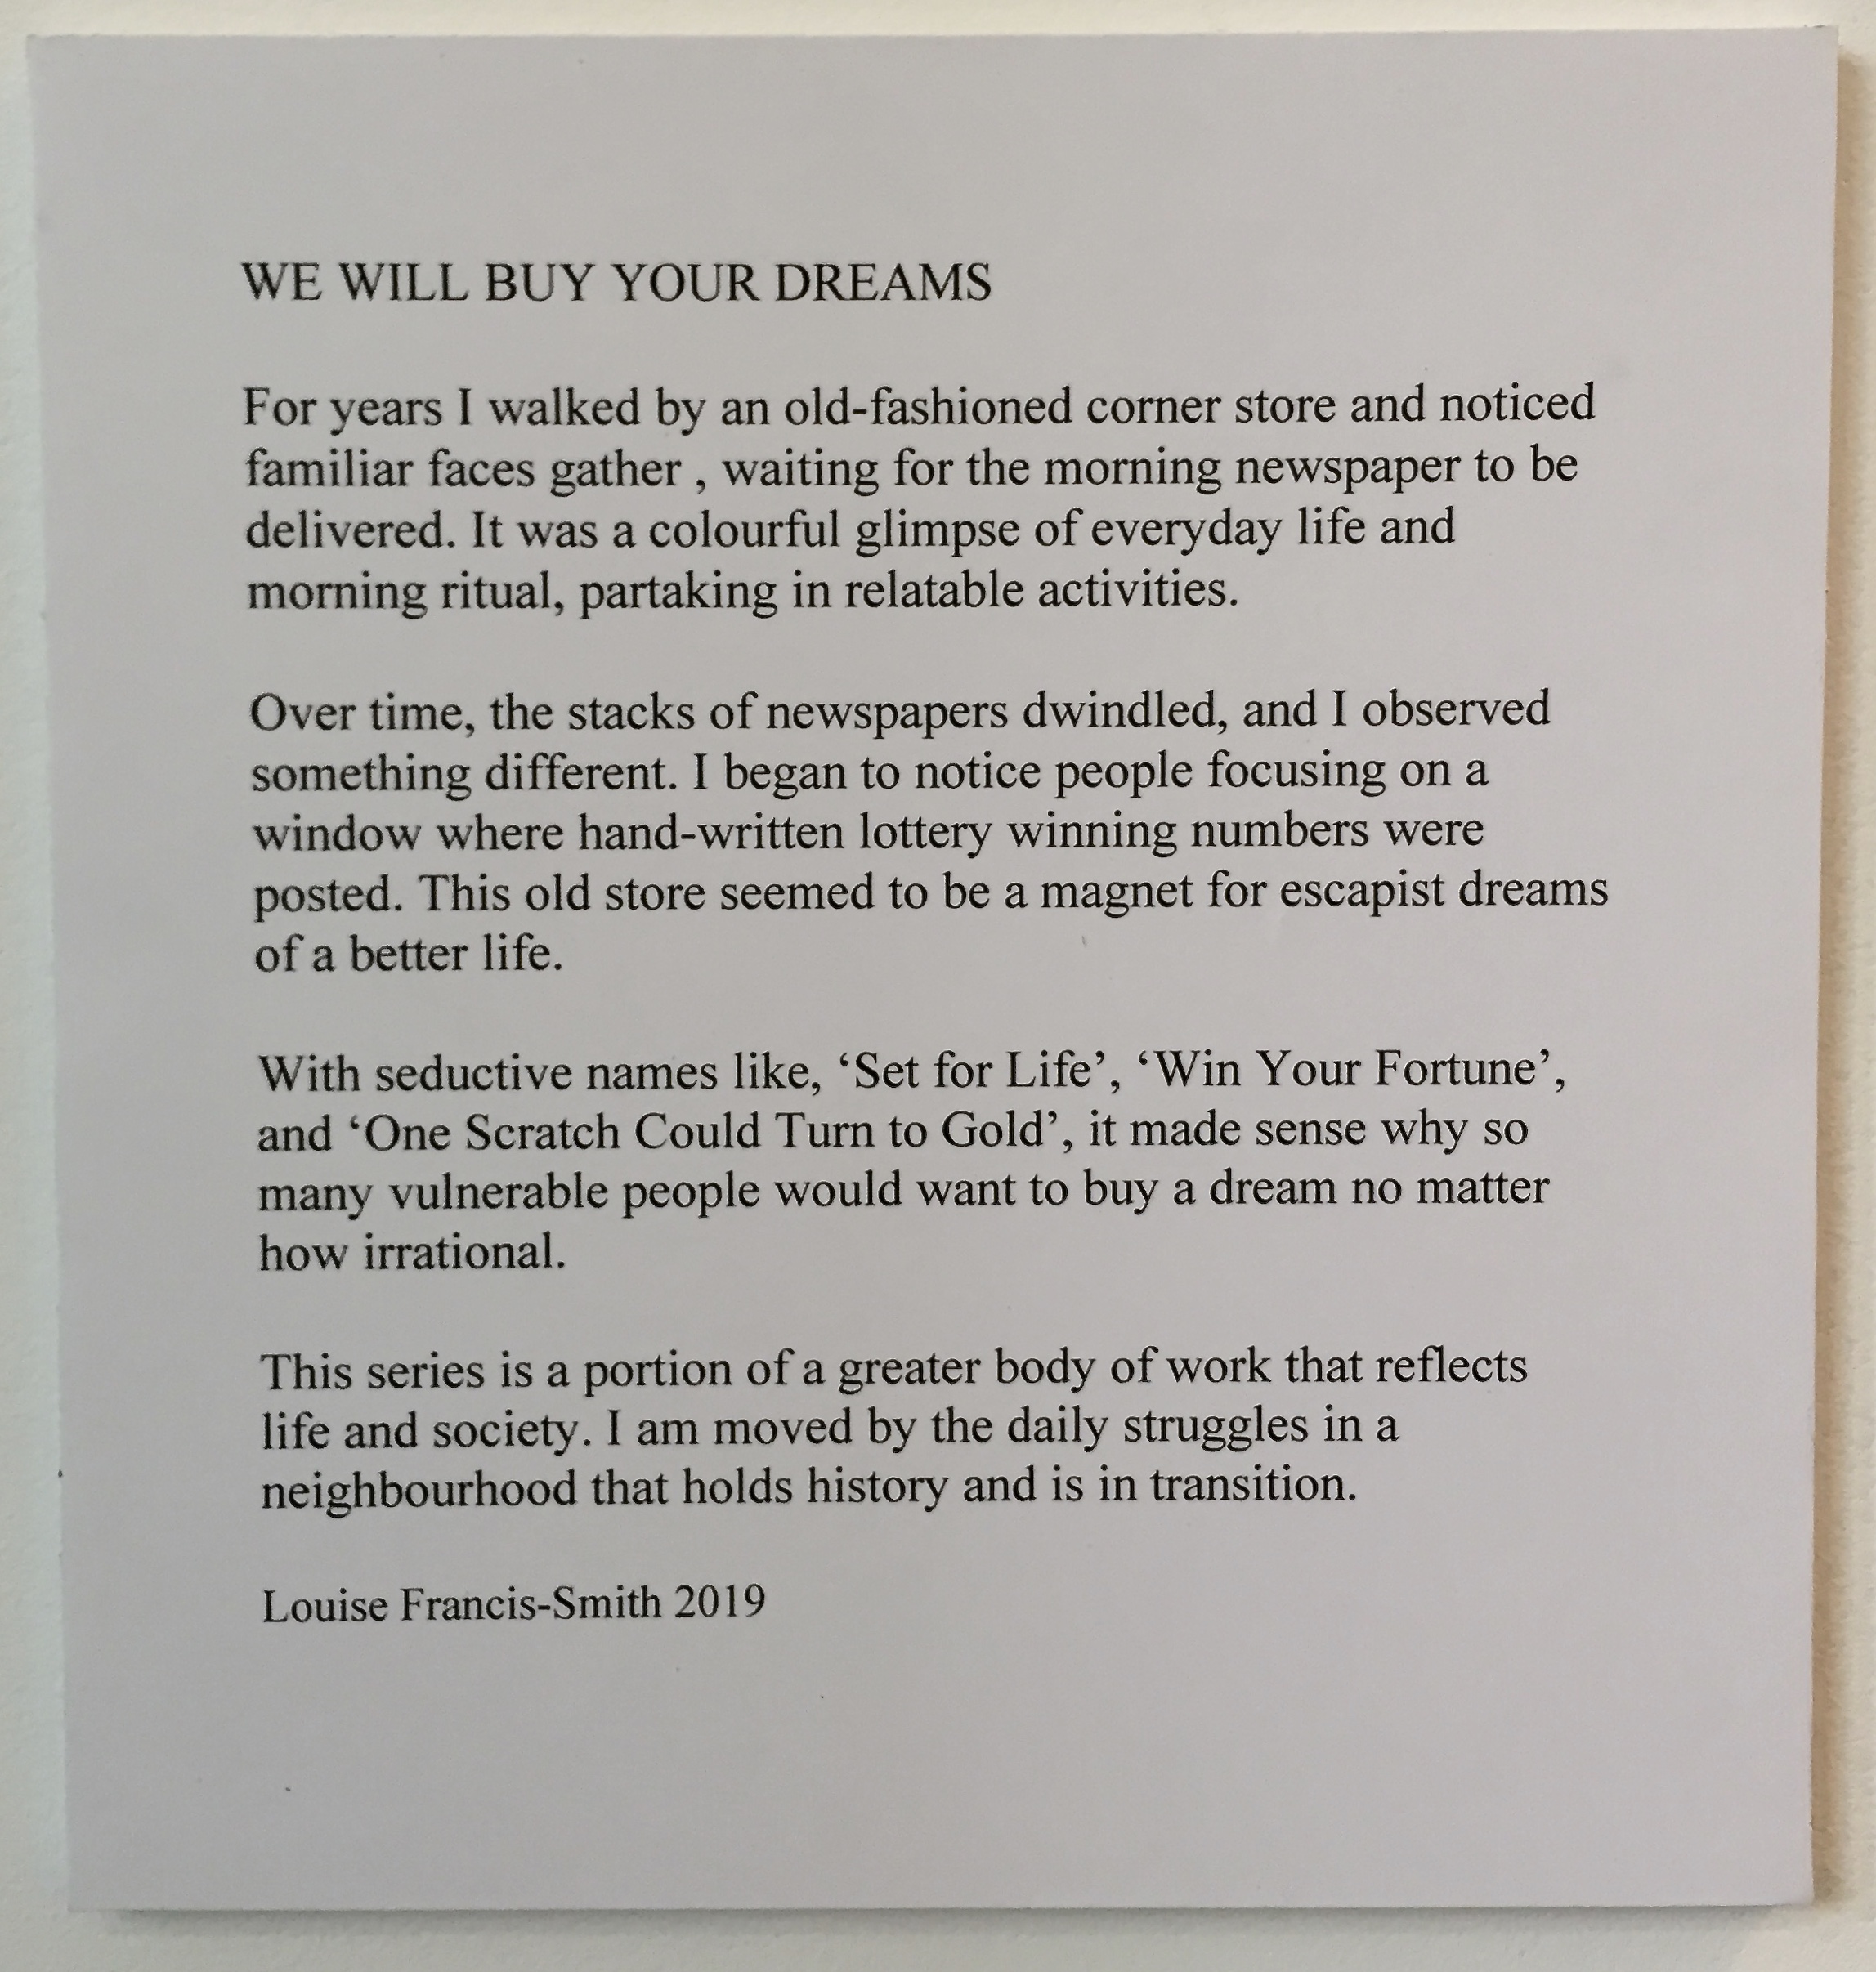 WE WILL BUY YOUR DREAMS
For years I walked by an old-fashioned corner store and noticed
familiar faces gather , waiting for the morning newspaper to be
delivered. It was a colourful glimpse of everyday life and
morning ritual, partaking in relatable activities.
Over time, the stacks of newspapers dwindled, and I observed
something different. I began to notice people focusing on a
window where hand-written lottery winning numbers were
posted. This old store seemed to be a magnet for escapist dreams
of a better life.
With seductive names like, ‘Set for Life’, ‘Win Your Fortune’,
and ‘One Scratch Could Turn to Gold’, it made sense why so
many vulnerable people would want to buy a dream no matter
how irrational.
This series is a portion of a greater body of work that reflects
life and society. I am moved by the daily struggles in a
neighbourhood that holds history and is in transition.
Louise Francis-Smith 2019